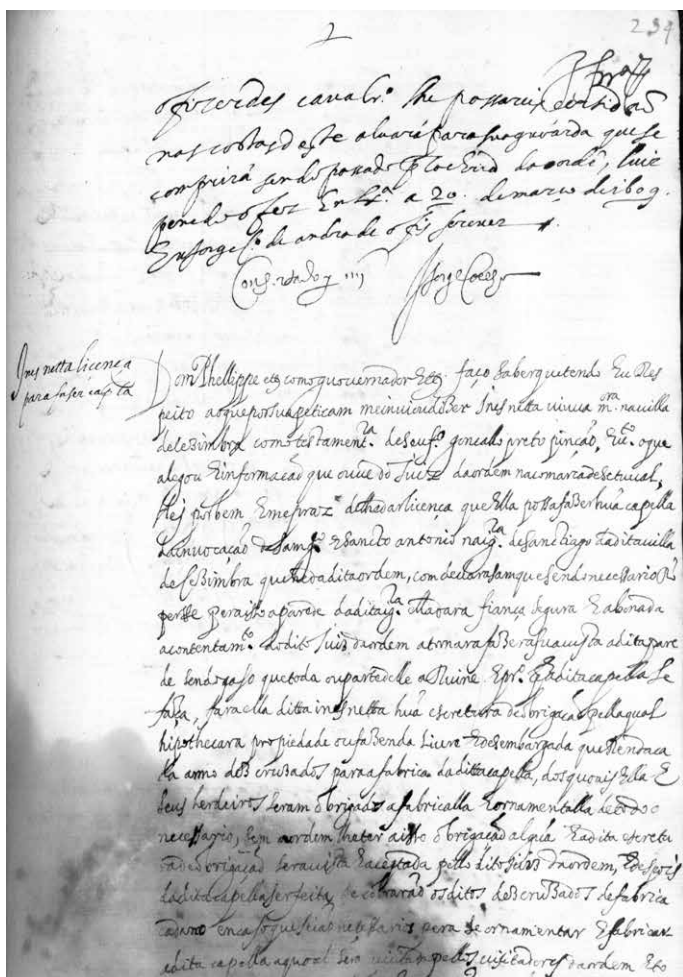 234
2
os forcides cavalr.os lhe passarix certidaõ
nas costas deste alvará para sua guarda que se
comprirá sendo passado pla chrĩa da ordẽ, luis
o fez Em Lx.ª a 20. de março de 1609.
de andrade o fis screver
Consertado y iiij Jorge Coelho
Ines netta licença
para faser capella
Dom Phellippe etc como guovernador Ettc faço saber que tendo Eu Res
peito ao que por sua peticam me inviou diBer Ines netta viuva m.ora na villa
de CeBimbra como testament.ra de seu f.o goncallo preto pinção, E v.to o que
alegou E informacaõ que ouve do Juiz da ordem na comarca de Setuval,
Hej por bem E me praz de lhe dar licenca que Ella possa faBer huã capella
da invocação de Sanct.o Antonio na ig.ra de Sanctiago da dita villa
de CeBimbra que he da dita ordem, com declarasam que sendo necessario Rõ
perse pera isso a parede da dita ig.ra Ella dara fiança segura E abonada
a contentam.to do dito Juis da ordem a tornar a faBer a sua custa a dita pare
de sendo caso que toda ou parte delle a Ruine E pr.o q̃ a dita capella se
faça, fara ella ditta ines netta huã escretura de obrigaçaõ pella qual
hipothecara propiedade ou faBenda livre E desembargada que Renda ca
da anno dous cruBados para a fabrica da ditta capella, dos quais Ella E
seus herdeiros seram obrigados a fabricalla E ornamentalla de todo o
necessario, sem a ordem lhe ter a isso obrigaçaõ algũa E a dita escretu
ra de obrigaçaõ sera vista E aceptada pello dito Juis da ordem, E despois
da dita capella ser feita, se cobraraõ os ditos dous cruBados de fabrica
cadano em caso que sejaõ necessarios pera se ornamentar E fabricar
a dita capella a qual será visitada pellos visitadores da ordem E